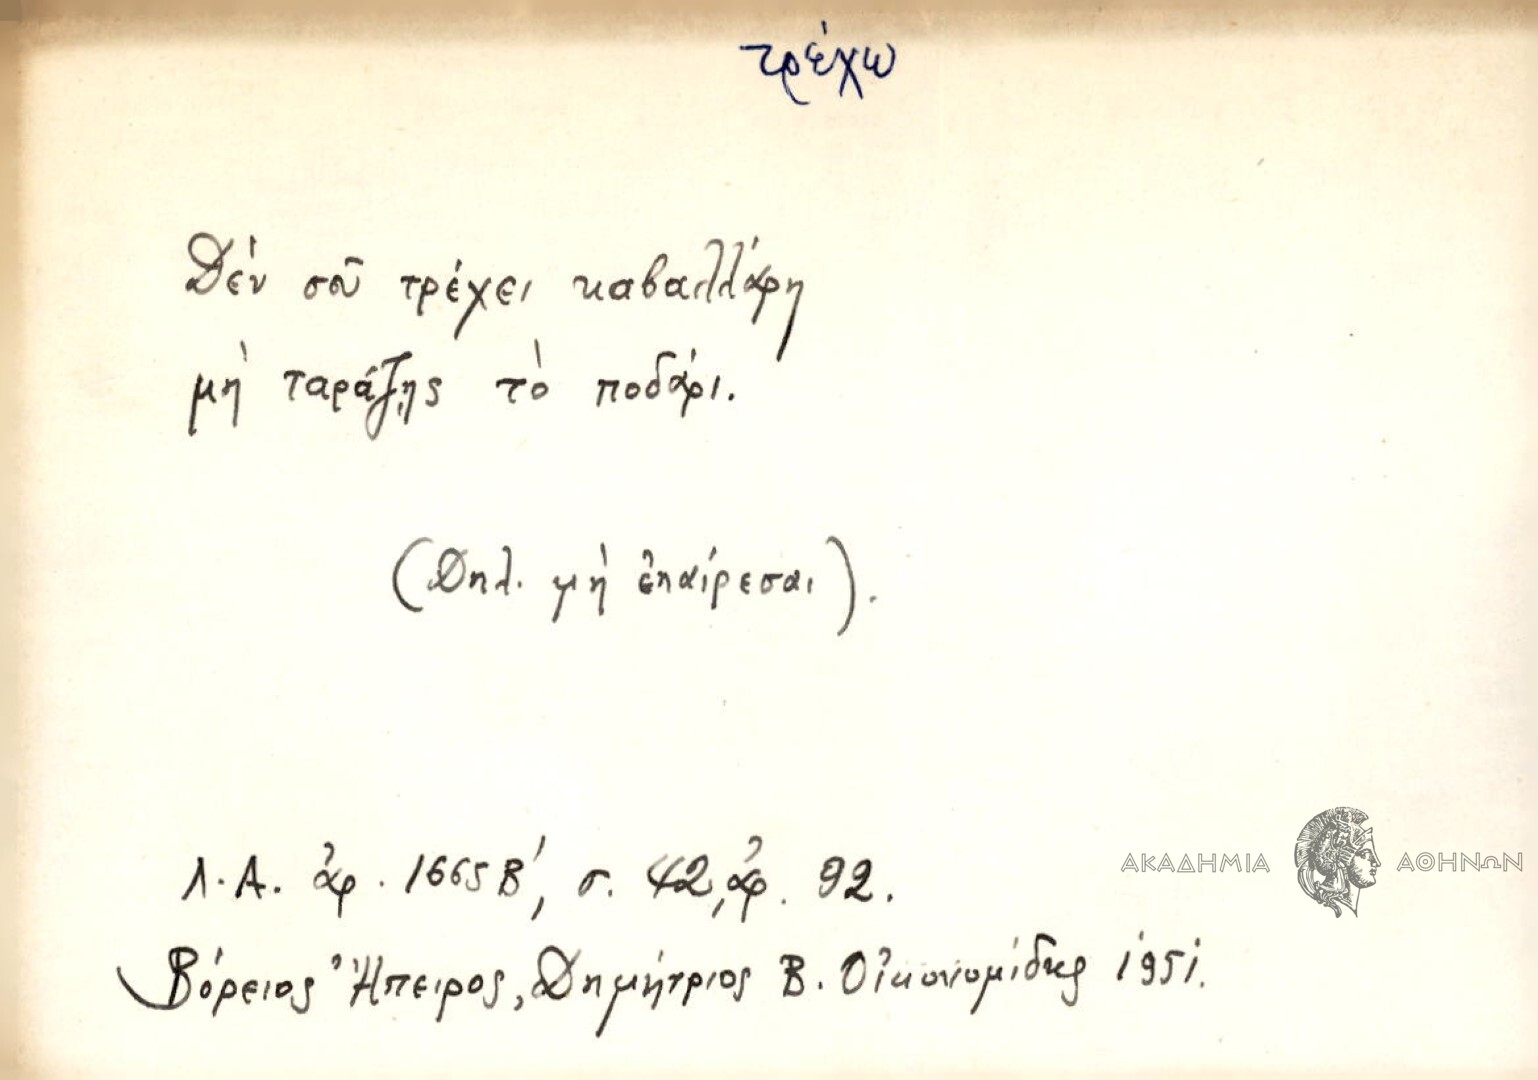 τρέχω
Δέν σοῦ τρέχει καβαλλάρη
μή ταράξῃς τὸ ποδάρι.
(Δηλ. μή ἐπαίρεσαι).
Λ.Α. ἀρ. 1665 Β', σ. 42, ἀρ. 92.
ΑΚΑΔΗΜΙΑ ΑΘΗΝΩΝ
Βόρειος Ἤπειρος, Δημήτριος Β. Οἰκονομίδης 1951.